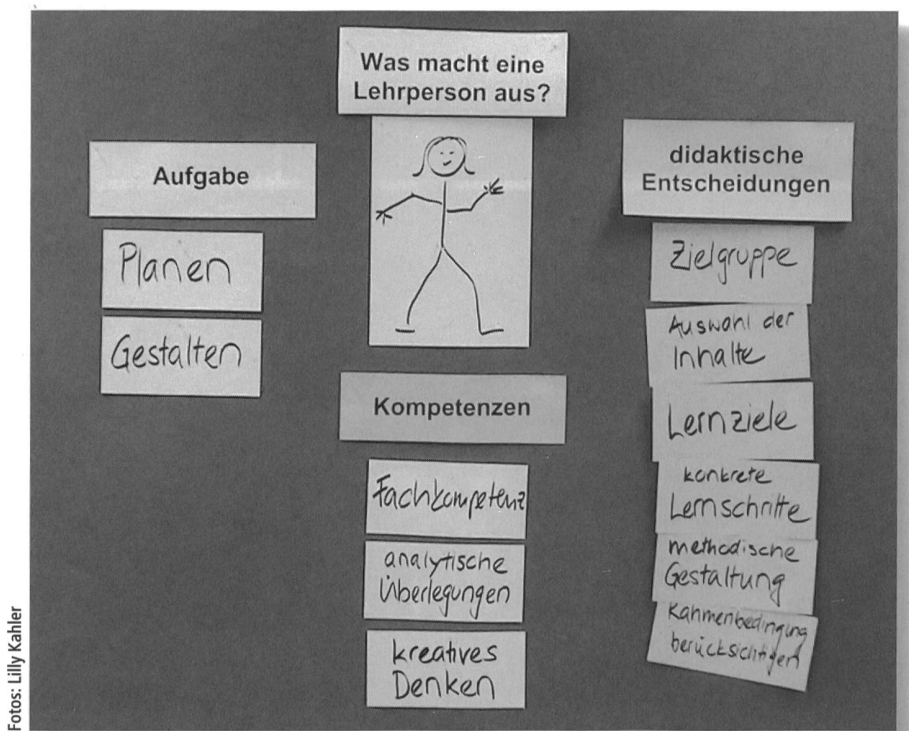 Was macht eine
Lehrperson aus?
Aufgabe
Planen
Gestalten
Kompetenzen
Fachkompetenz
analytische
Überlegungen
kreatives
Denken
didaktische
Entscheidungen
Zielgruppe
Auswahl der
Inhalte
Lernziele
konkrete
Lernschritte
methodische
Gestaltung
Rahmenbedingung
berücksichtigen
Fotos: Lilly Kahler